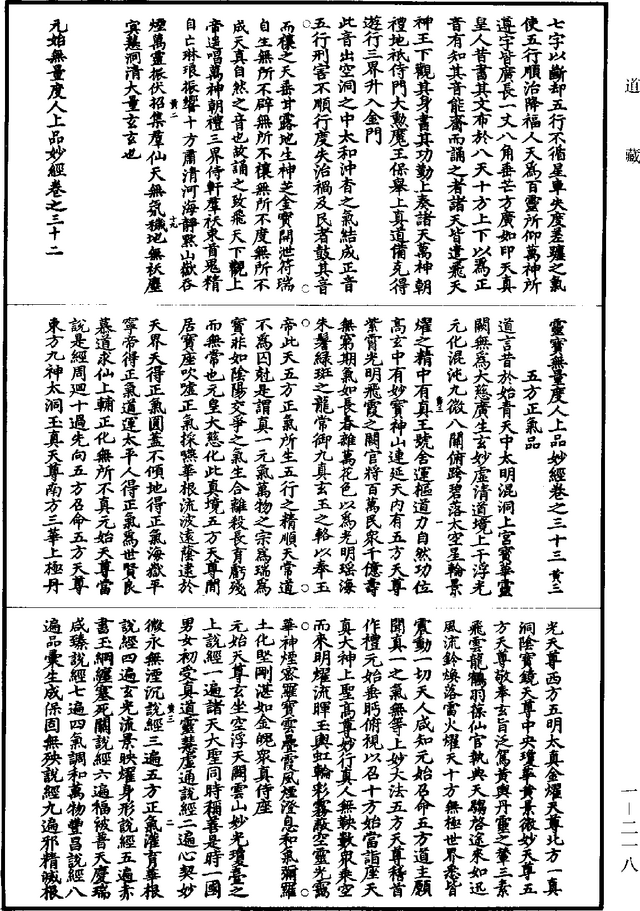 道藏
七字以斷却五行不循星車失度差躔之氣
使五行順治降福人天為百靈所仰萬神所
遵字皆廣長一丈八角垂芒方廣如印天真
皇人昔書其文布於八天十方上下以為正
音有知其音能齋而誦之者諸天皆遣飛天
神王下觀其身書其功勤上奏諸天萬神朝
禮地祇侍門大勳魔王保舉上真道備克得
遊行三界升入金門
此音出空洞之中太和沖香之氣結成正音
五行刑害不順行度失治禍及民者鼓其音
而禳之天垂甘露地生神芝金寶開泄符瑞
自生無所不辟無所不禳無所不度無所不
成天真自然之音也故誦之致飛天下觀上
帝遥唱萬神朝禮三界侍軒群妖束首鬼精
自亡琳琅振響十方肅清河海靜默山嶽吞
黄二
十九
煙萬靈振伏招集群仙天無氛穢地無妖塵
冥慧洞清大量玄玄也
元始無量度人上品妙經卷之三十二
靈寶無量度人上品妙經卷之三十三 黃三
五方正氣品
道言昔於始青天中太明混洞上宮寶華靈
闕無為大慈廣生玄妙虛清道境上干浮光
元化混沌九微八關俯跨碧落太空星輪景
黃三
一
燿之精中有真王號舍運樞道力自然功位
高玄中有妙寶神山連延天內有五方天尊
紫霄光明飛霞之闕官將百萬民眾千億壽
無窮期氣如長春雜萬花色以為光明瑶海
朱鬐綠斑之龍常御九真玄王之輅以奉玉
帝此天五方正氣所生五行之精順天常道
不為囚尅是謂真一元氣萬物之宗為瑞為
寶非如陰陽交爭之氣生合離殺長育虧殘
而無常也元皇大慈化此真境五方天尊閒
居寶座吹噓正氣採嚥華根流波遠蔭逮於
天界天得正氣圓蓋不傾地得正氣海嶽平
寧帝得正氣道運太平人得正氣為世賢良
慕道求仙上輔正化無所不真元始天尊當
說是經周迴十過先向五方召命五方天尊
東方九神太洞玉真天尊南方三華上極丹
光天尊西方五明太真金燿天尊北方一真
洞陰寶鏡天尊中央瓊華黃景微妙天尊五
方天尊敬奉玄旨泛駕黃輿丹靈之輦三素
飛雲龍鶴羽葆仙官執輿天騶啓途來如迅
風流鈴煥落雷火燿天十方無極世界悉皆
震動一切天人咸知元始召命五方道主願
聞真一之氣無等上妙大法五方天尊稽首
作禮元始垂眄俯視以召十方始當詣座天
真大神上聖高尊妙行真人無鞅數眾乘空
而來明燿流暉玉輿虹輪彩霧蔽空靈光靄
華神煙密羅寶雲疊霞風煙澄息和氣彌羅
土化堅剛湛如金魄眾真侍座
元始天尊玄坐空浮天闕雲山妙光瓊臺之
上說經一遍諸天大聖同時稱善是時一國
男女初受真道靈慧虛通說經二遍心契妙
黃三
二
微永無湮沉說經三遍五方正氣灌育華根
說經四遍玄光流景映燿身形說經五遍赤
書玉綱羅塞死關說經六遍福被普天慶瑞
咸臻說經七遍四氣調和萬物豐昌說經八
遍品彙生成保固無殃說經九遍邪精滅根
一—二一八